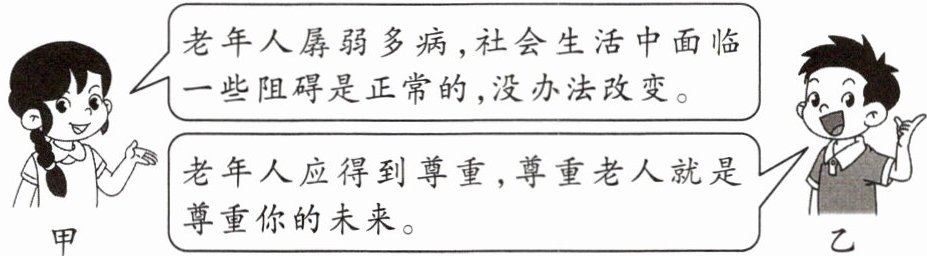 老年人孱弱多病,社会生活中面临
一些阻碍是正常的,没办法改变。
老年人应得到尊重,尊重老人就是
尊重你的未来。
甲
乙